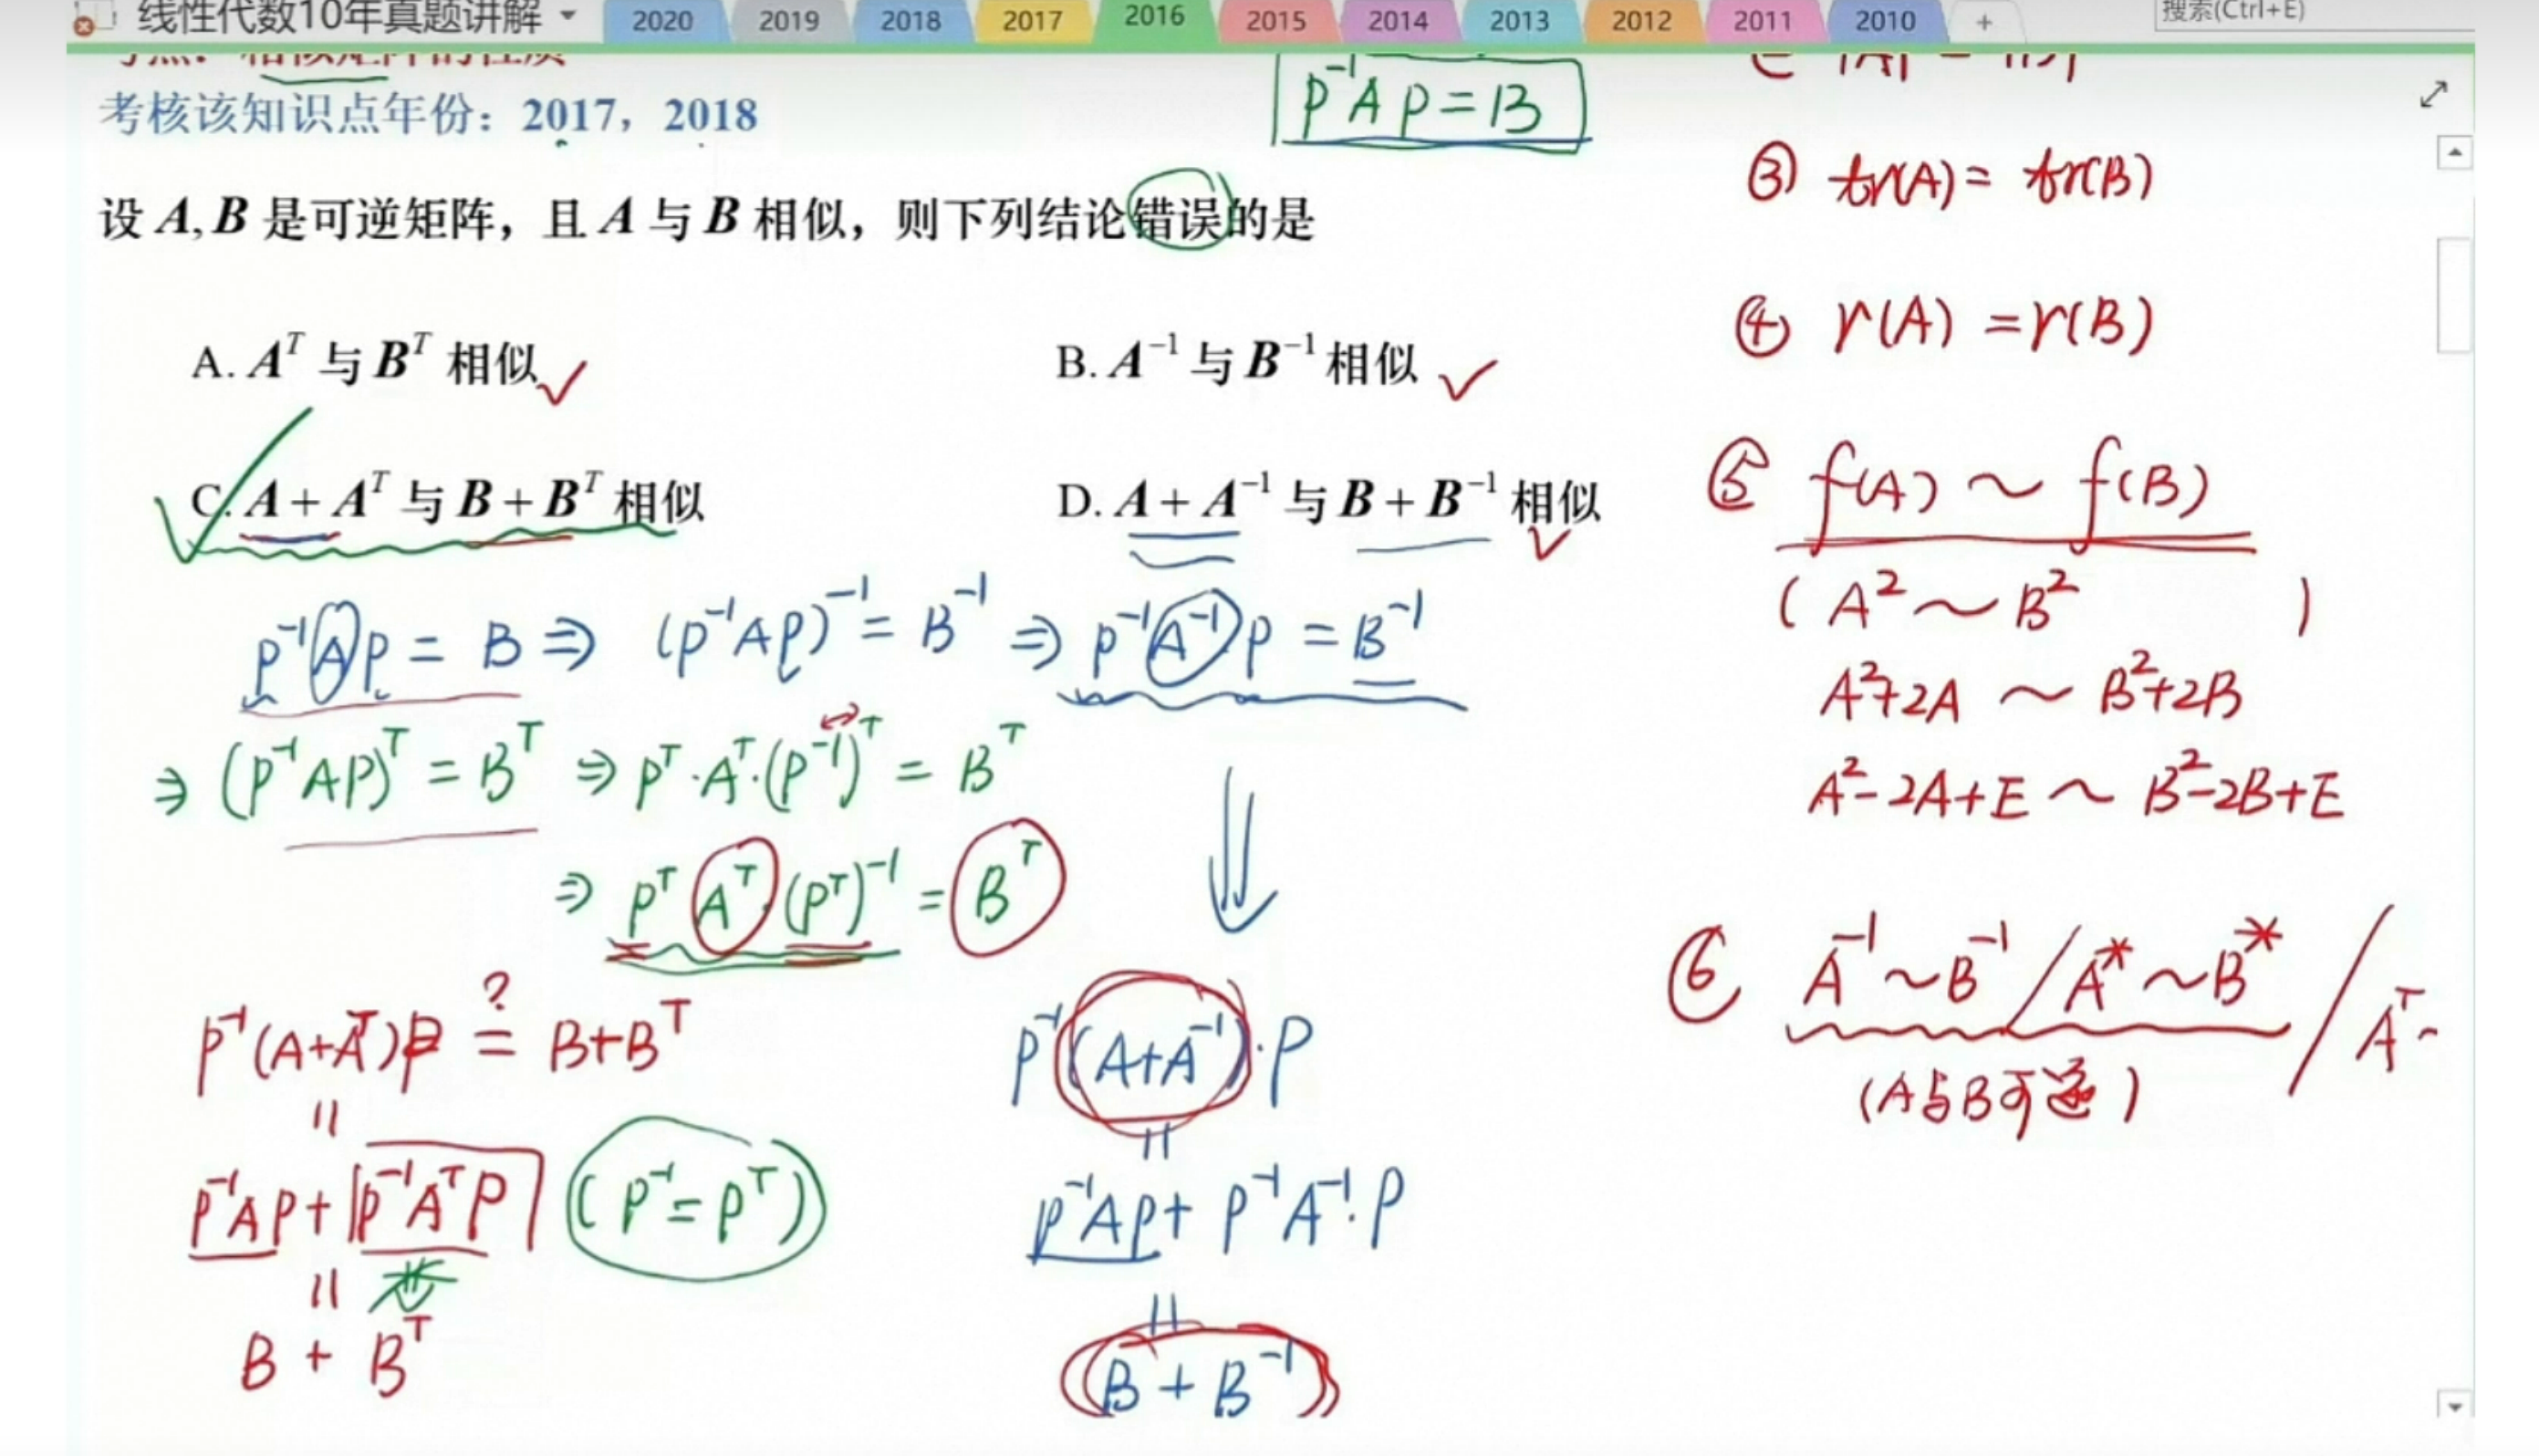 线性代数10年真题讲解
2020 2019 2018 2017 2016 2015 2014 2013 2012 2011 2010 +
搜索(Ctrl+E)
考点：相似矩阵的性质
考核该知识点年份：2017，2018
P⁻¹AP=B
设 A, B 是可逆矩阵，且 A 与 B 相似，则下列结论错误的是
A. Aᵀ 与 Bᵀ 相似 ✓
B. A⁻¹ 与 B⁻¹ 相似 ✓
C. A + Aᵀ 与 B + Bᵀ 相似
D. A + A⁻¹ 与 B + B⁻¹ 相似 ✓
P⁻¹AP = B ⇒ (P⁻¹AP)⁻¹ = B⁻¹ ⇒ P⁻¹A⁻¹P = B⁻¹
⇒ (P⁻¹AP)ᵀ = Bᵀ ⇒ Pᵀ·Aᵀ·(P⁻¹)ᵀ = Bᵀ
⇒ Pᵀ Aᵀ (Pᵀ)⁻¹ = Bᵀ
P⁻¹(A+Aᵀ)P ?= B+Bᵀ
=
P⁻¹AP + P⁻¹AᵀP (P⁻¹=Pᵀ)
=
B + Bᵀ
P⁻¹(A+A⁻¹)·P
=
P⁻¹AP + P⁻¹A⁻¹·P
=
(B + B⁻¹)
③ tr(A) = tr(B)
④ r(A) = r(B)
⑤ f(A) ~ f(B)
( A² ~ B² )
A²+2A ~ B²+2B
A²-2A+E ~ B²-2B+E
⑥ A⁻¹~B⁻¹ / A*~B* / Aᵀ~
(A与B可逆)